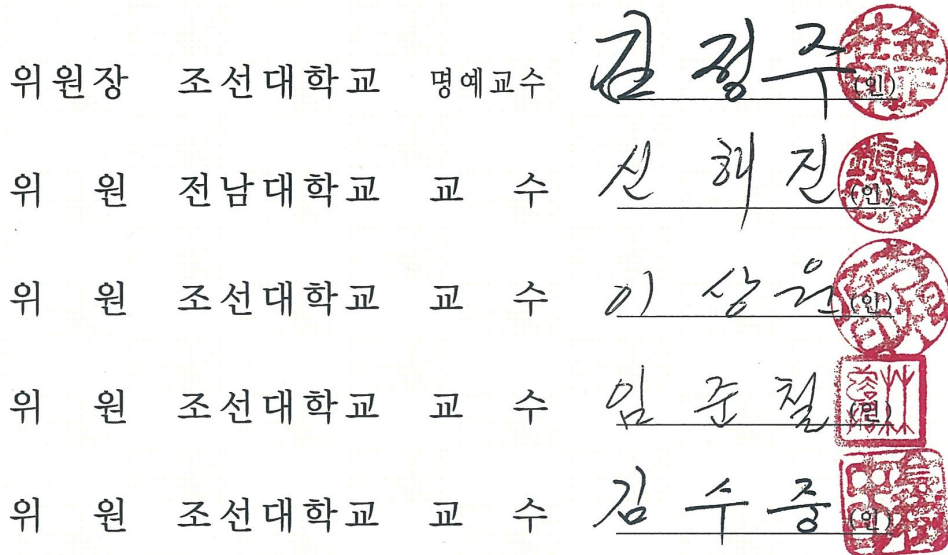 위원장 조선대학교 명예교수 김정주 (인)
위 원 전남대학교 교 수 신해진 (인)
위 원 조선대학교 교 수 이상원 (인)
위 원 조선대학교 교 수 임준철 (인)
위 원 조선대학교 교 수 김수중 (인)